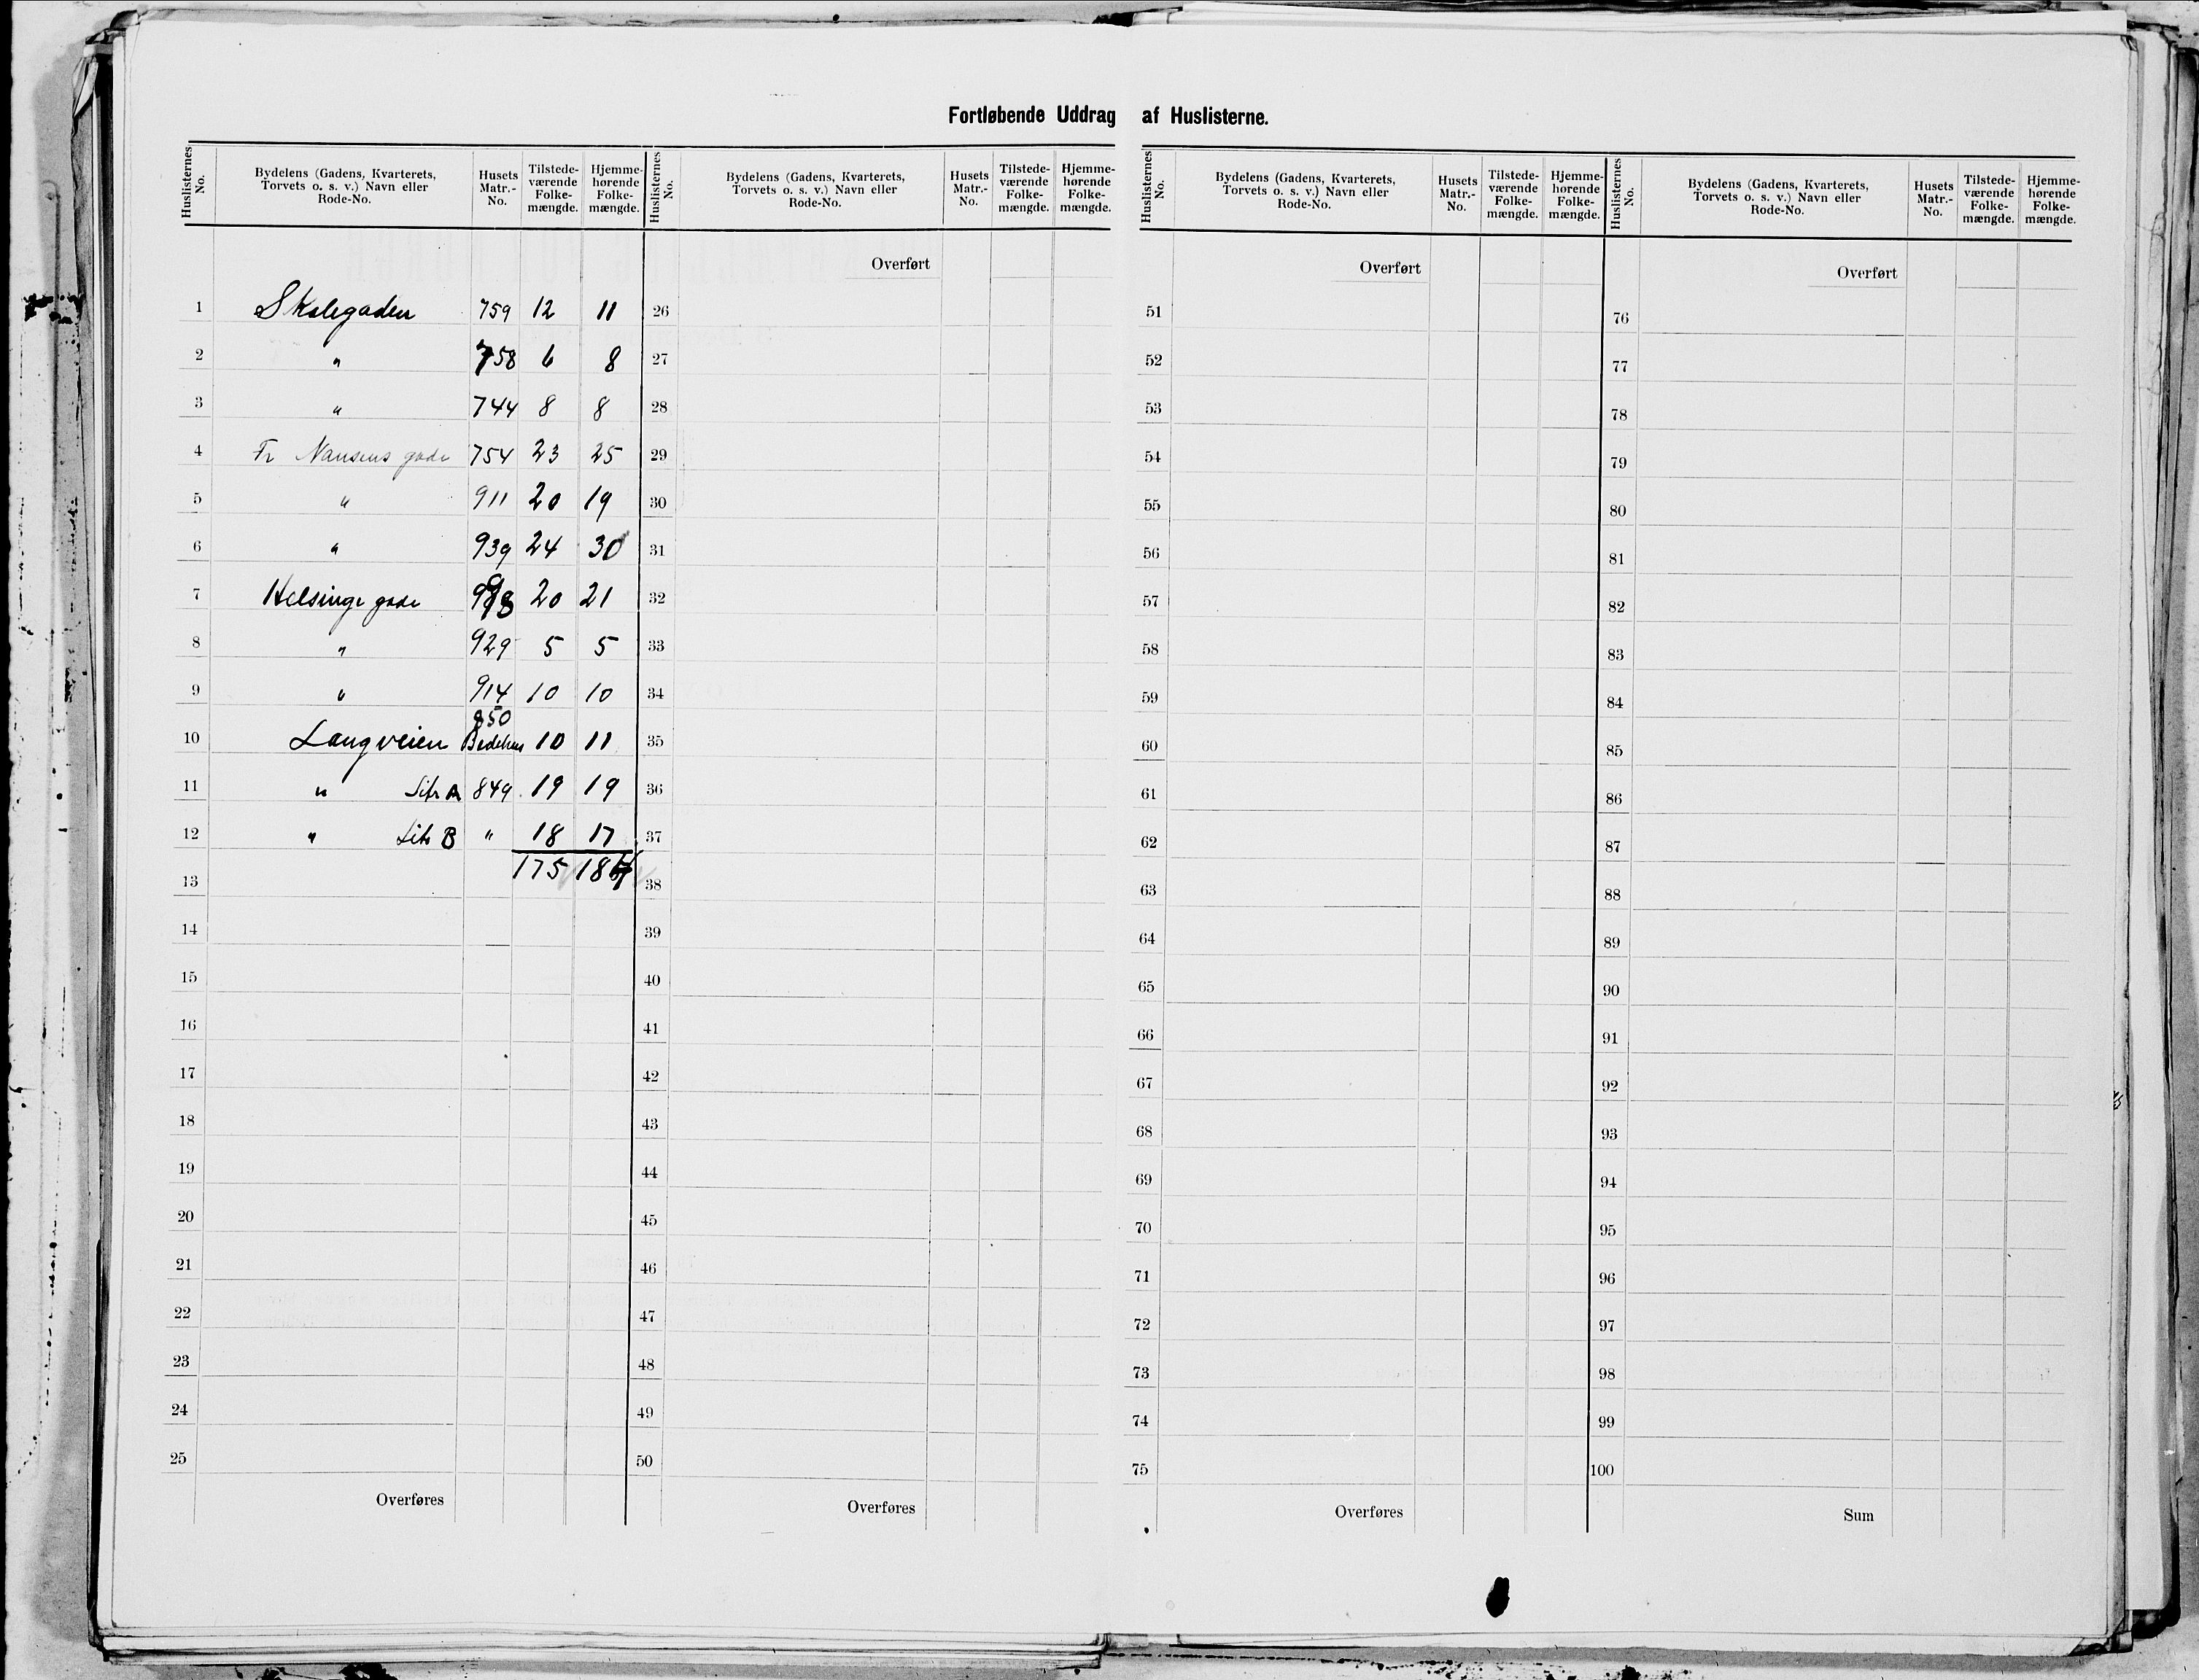 Fortløbende Uddrag af Huslisterne.
Huslisternes No. Bydelens (Gadens, Kvarterets, Torvets o. s. v.) Navn eller Rode-No. Husets Matr.-No. Tilstede-værende Folke-mængde. Hjemme-hørende Folke-mængde.
1 Skolegaden 759 12 11
2 " 758 6 8
3 " 744 8 8
4 Fr Nansens gade 754 23 25
5 " 911 20 19
6 " 939 24 30
7 Helsinge gade 20 21
8 " 929 5 5
9 " 914 10 10
950
10 Langveien Bedehus 10 11
11 " Litr A 849 19 19
12 " Litr B " 18 17
175 184
13
14
15
16
17
18
19
20
21
22
23
24
25
Overføres
Huslisternes No. Bydelens (Gadens, Kvarterets, Torvets o. s. v.) Navn eller Rode-No. Husets Matr.-No. Tilstede-værende Folke-mængde. Hjemme-hørende Folke-mængde.
Overført
26
27
28
29
30
31
32
33
34
35
36
37
38
39
40
41
42
43
44
45
46
47
48
49
50
Overføres
Huslisternes No. Bydelens (Gadens, Kvarterets, Torvets o. s. v.) Navn eller Rode-No. Husets Matr.-No. Tilstede-værende Folke-mængde. Hjemme-hørende Folke-mængde.
Overført
51
52
53
54
55
56
57
58
59
60
61
62
63
64
65
66
67
68
69
70
71
72
73
74
75
Overføres
Huslisternes No. Bydelens (Gadens, Kvarterets, Torvets o. s. v.) Navn eller Rode-No. Husets Matr.-No. Tilstede-værende Folke-mængde. Hjemme-hørende Folke-mængde.
Overført
76
77
78
79
80
81
82
83
84
85
86
87
88
89
90
91
92
93
94
95
96
97
98
99
100
Sum